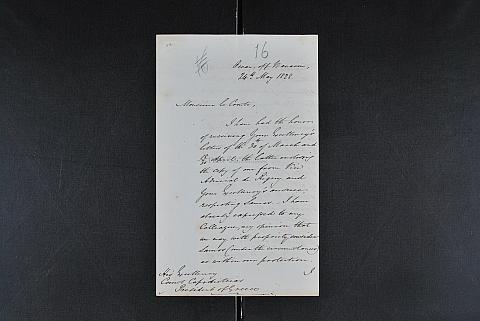 16
off Navarin,
24th May 1828
Monsieur le Comte,
I have had the honor
of receiving Your Excellency's
letters of the 30th of March and
April, the latter enclosing
the copy of one from Vice
Admiral de Rigny and
Your Excellency's answer
respecting Samos. I have
already expressed to my
Colleague, my opinion that
we may with propriety consider
Samos (under the circumstances)
as within our protection.
I
His Excellency
Count Capodistrias
President of Greece